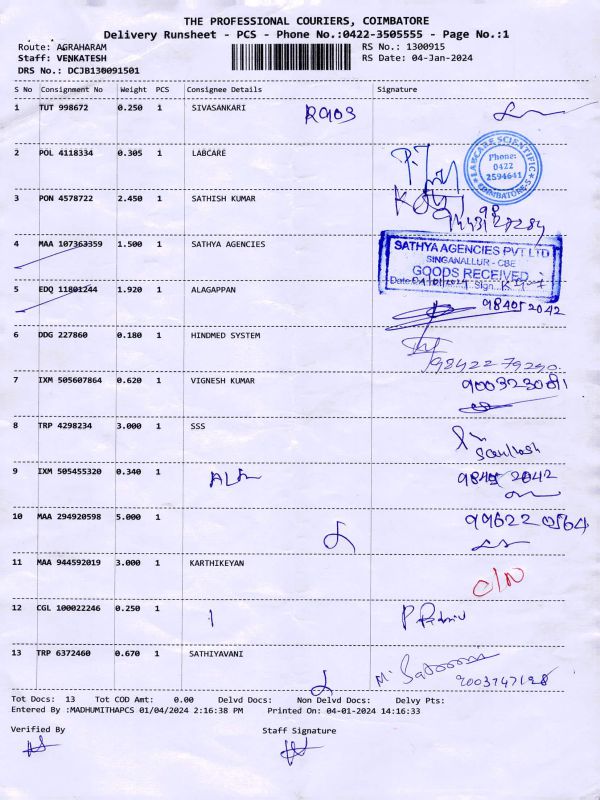 THE PROFESSIONAL COURIERS, COIMBATORE
Delivery Runsheet - PCS - Phone No.:0422-3505555 - Page No.:1
Route: AGRAHARAM
RS No.: 1300915
Staff: VENKATESH
RS Date: 04-Jan-2024
DRS No.: DCJB130091501
S No Consignment No Weight PCS Consignee Details Signature
1 TUT 998672 0.250 1 SIVASANKARI
2 POL 4118334 0.305 1 LABCARE
LABCARE SCIENTIFIC
Phone:
0422
2594641
COIMBATORE-5
3 PON 4578722 2.450 1 SATHISH KUMAR
4 MAA 107363359 1.500 1 SATHYA AGENCIES
SATHYA AGENCIES PVT LTD
SINGANALLUR - CBE
GOODS RECEIVED
Date 04/01/2024 Sign
5 EDQ 11801244 1.920 1 ALAGAPPAN
984052042
6 DDG 227860 0.180 1 HINDMED SYSTEM
98422 79290
7 IXM 505607864 0.620 1 VIGNESH KUMAR
8 TRP 4298234 3.000 1 SSS
Santhosh
9 IXM 505455320 0.340 1
10 MAA 294920598 5.000 1
99622
11 MAA 944592019 3.000 1 KARTHIKEYAN
12 CGL 100022246 0.250 1
13 TRP 6372460 0.670 1 SATHIYAVANI
Tot Docs: 13 Tot COD Amt: 0.00 Delvd Docs: Non Delvd Docs: Delvy Pts:
Entered By :MADHUMITHAPCS 01/04/2024 2:16:38 PM Printed On: 04-01-2024 14:16:33
Verified By Staff Signature